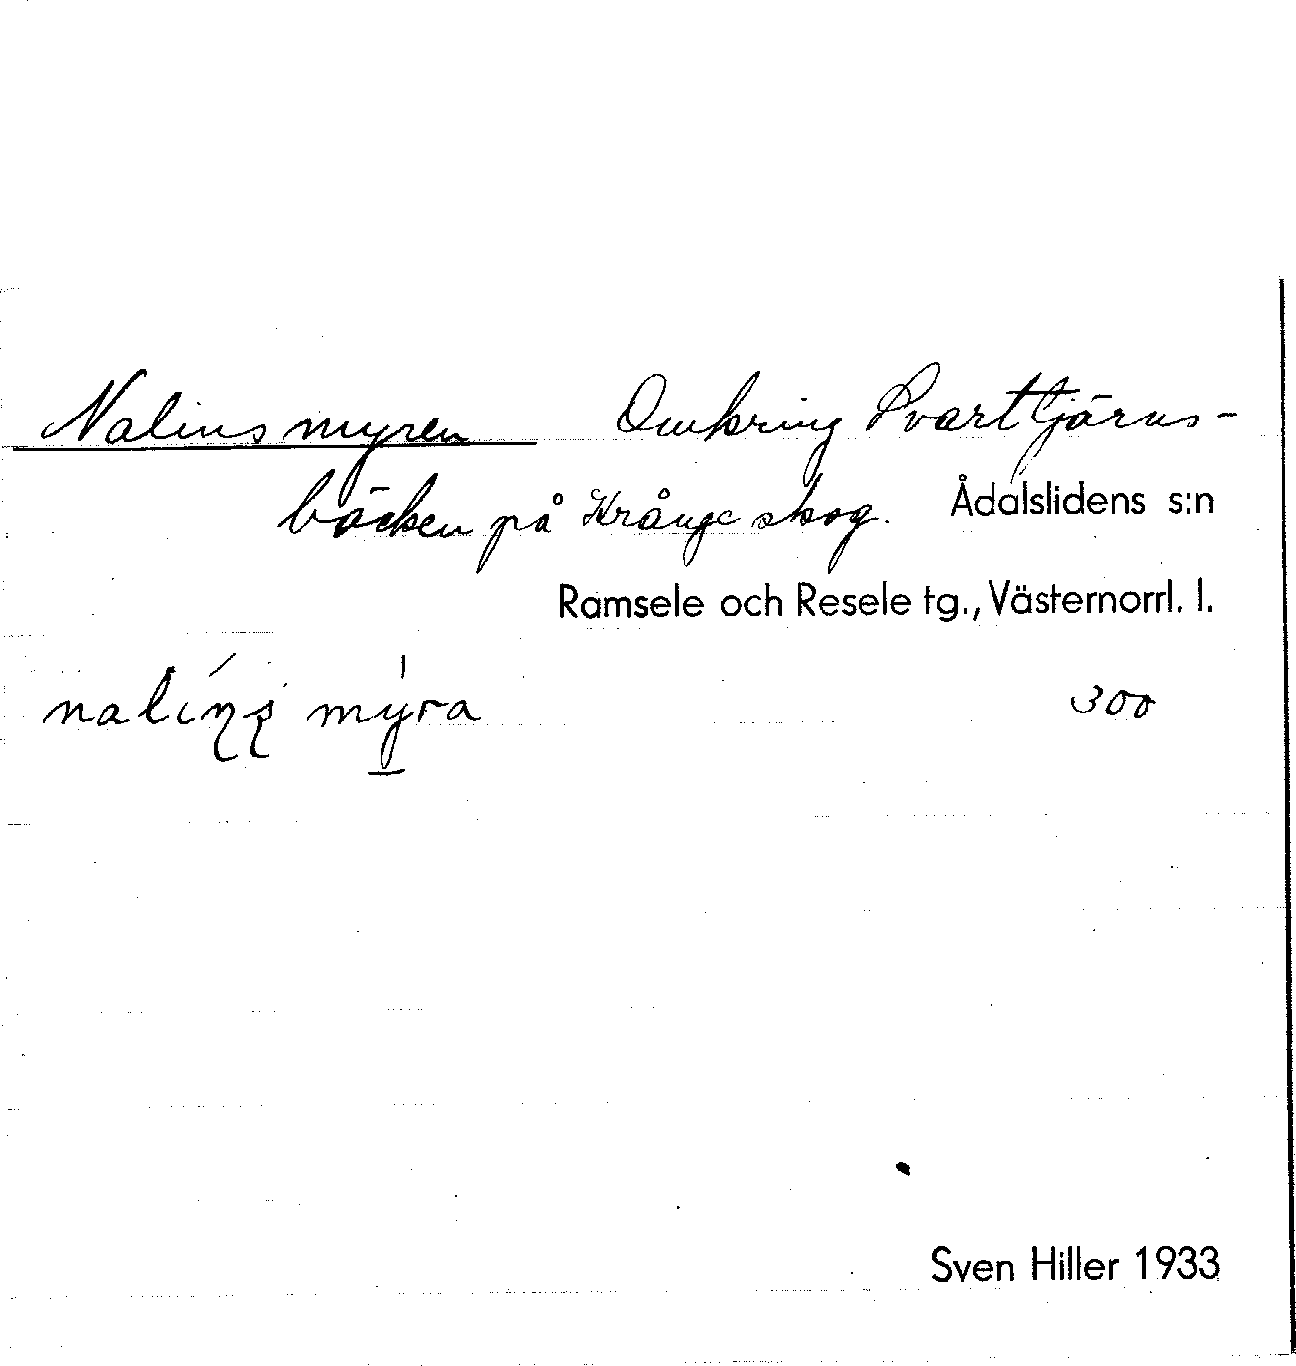 Nalins myren Omkring Svarttjärns-
bäcken på Krånge skog. Ådalslidens s:n
Ramsele och Resele tg., Västernorrl. l.
myra 300
Sven Hiller 1933